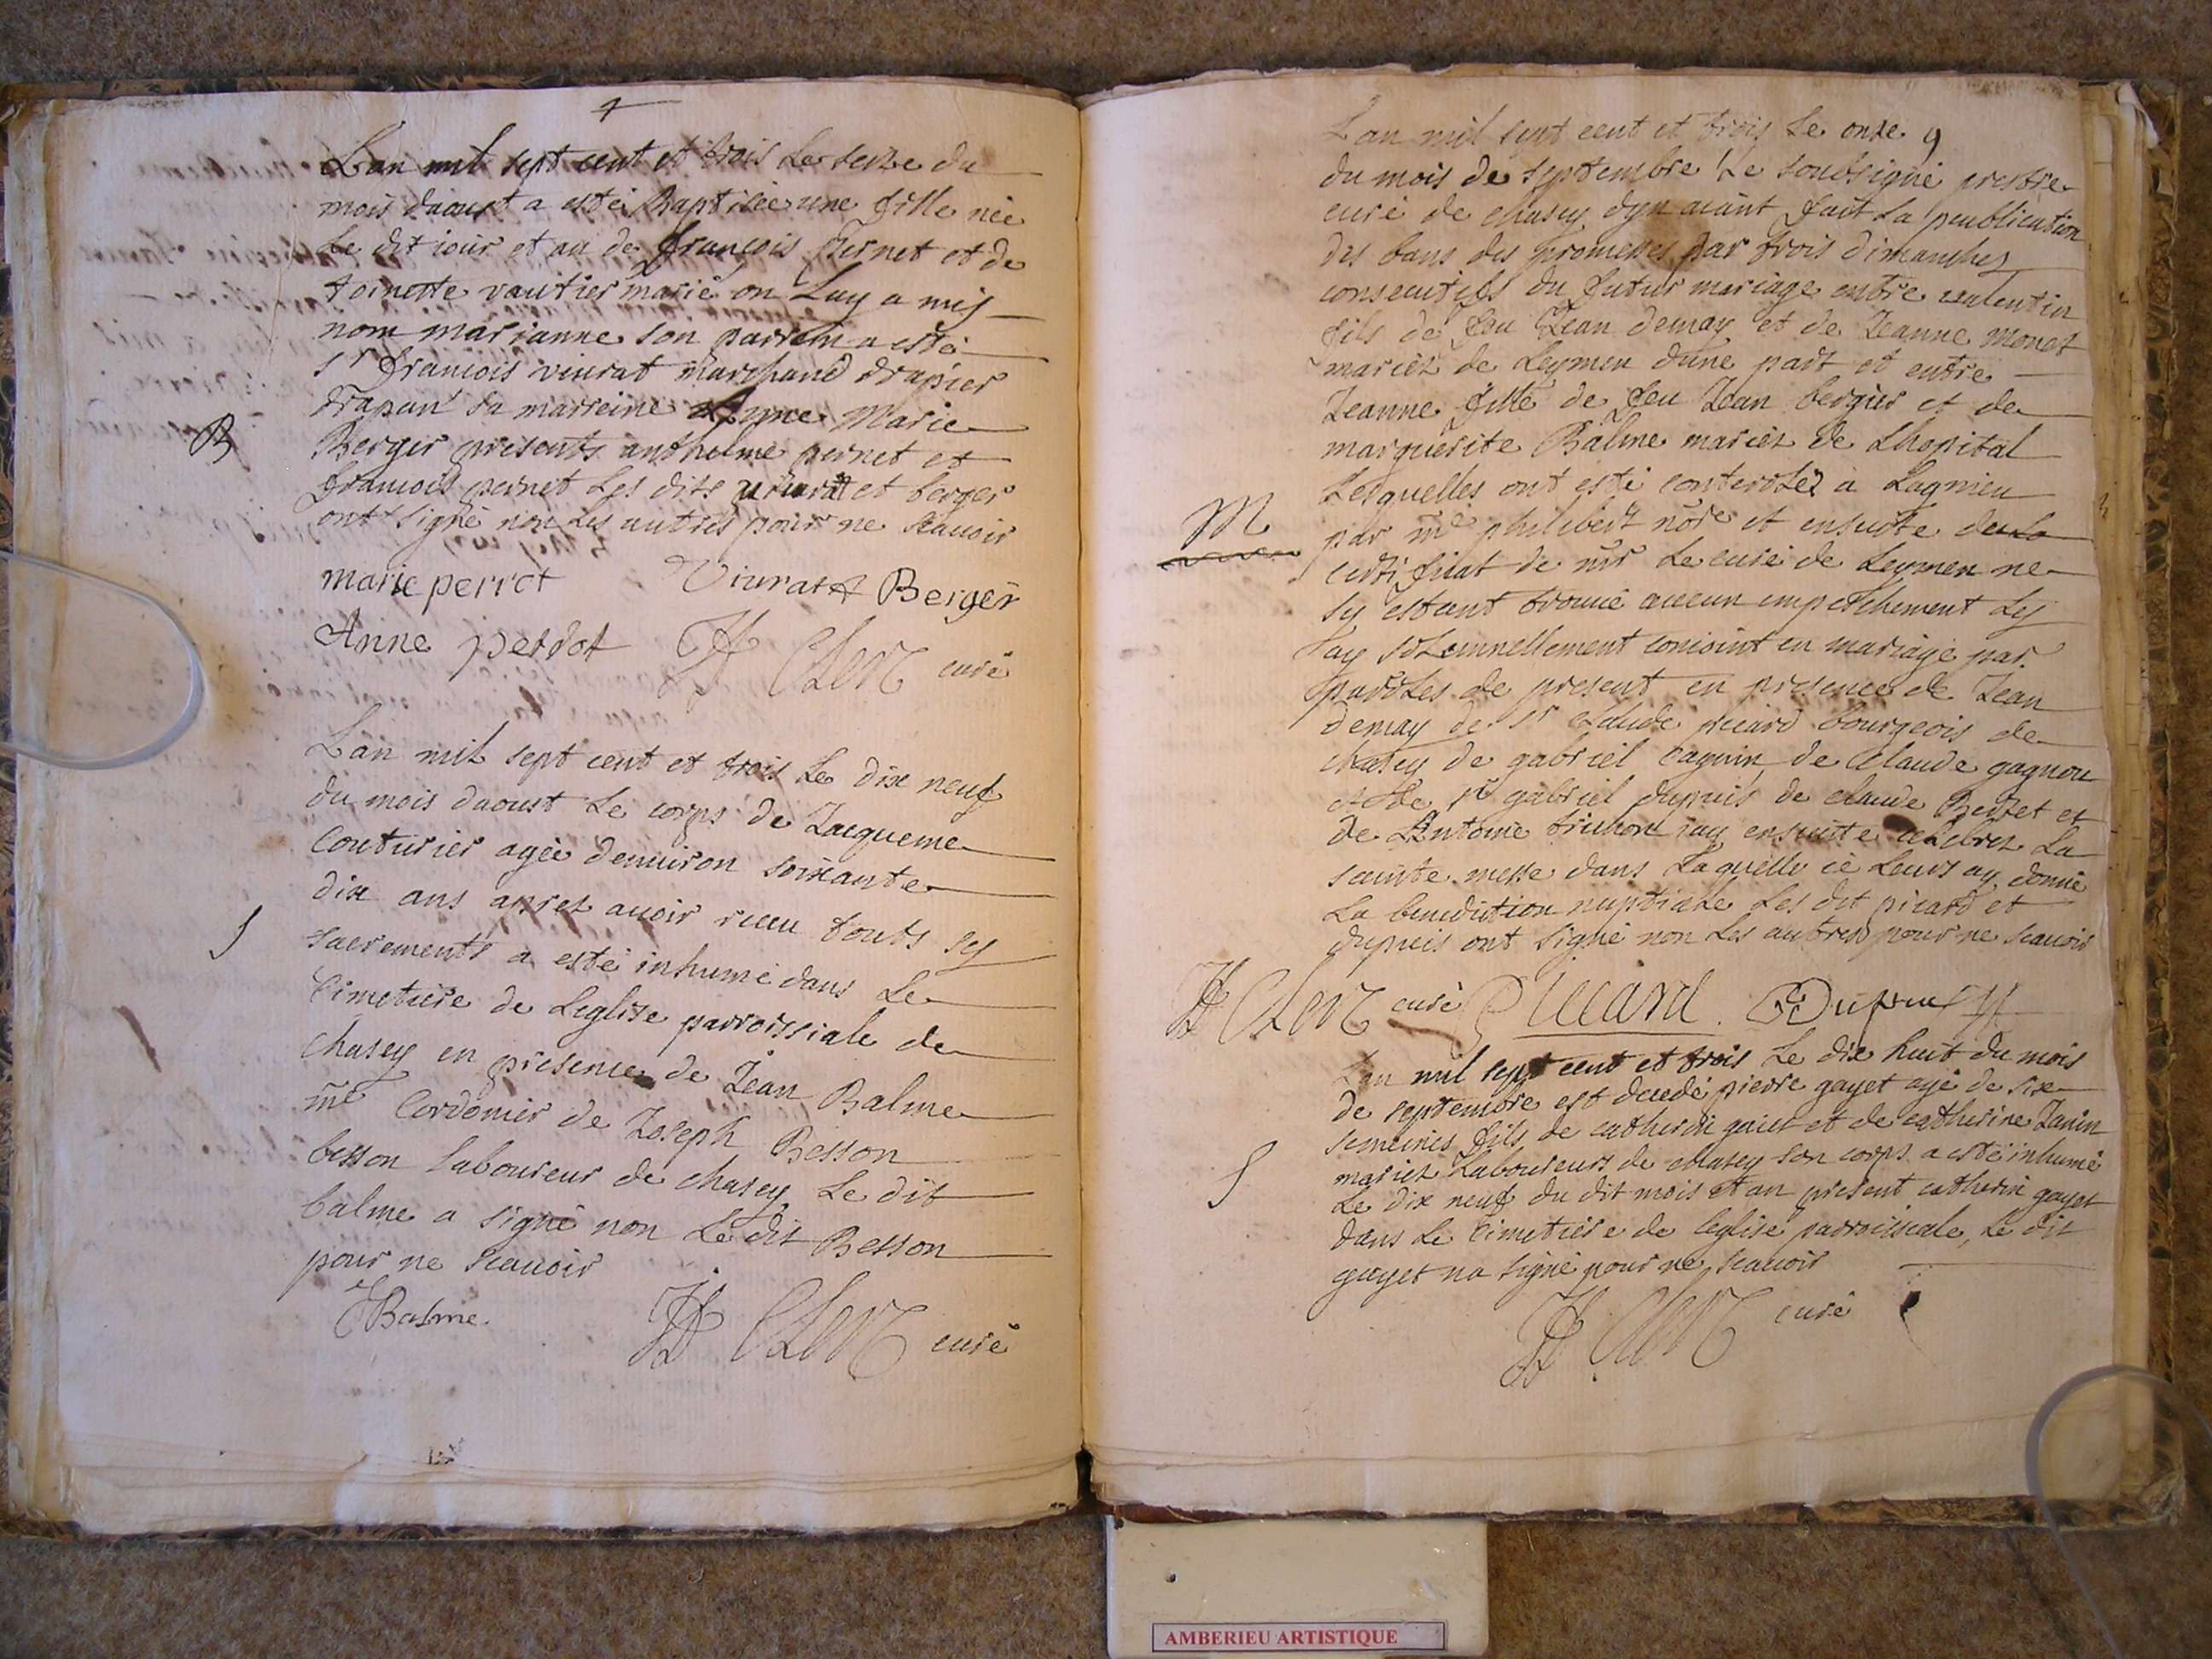 Lan mil sept cent et trois Le seize du
mois daoust a esté Baptisée une fille née
Le dit iour et an de francois Pernet et de
toinette vautier marié on Luy a mis
nom marianne son parrein a esté
sr francois viurat marchand drapier
drapan sa marreine Anne Marie
B
Berger presents anthelme pernet et
francois pernet Les dits viurat et berger
ont signé non Les autres pour ne scauoir
marie perrot Viurat Berger
Anne perrot Clerc curé
Lan mil sept cent et trois Le dix neuf
du mois daoust Le corps de Jacqueme
Couturier agée denuiron soixante
dix ans apres auoir receu touts ses
S
sacrements a esté inhumé dans Le
Cimetiere de Leglise parroissiale de
chasey en presence de Jean Balme
me Cordonier de Joseph Besson
besson laboureur de chasey Le dit
balme a signé non Le dit Besson
pour ne scauoir
Balme Clerc curé
Lan mil sept cent et trois Le onze 9
du mois de septembre Je soubsigné prestre
curé de chasey dyn aiant fait La publication
des bans des promesses par trois dimanches
consecutifs du futur mariage entre valentin
fils de feu Jean demay et de Jeanne monet
mariez de Leymen dune part et entre
Jeanne fille de feu Jean bergier et de
marguerite Balme mariez de Lhopital
Lesquelles ont esté à Lagnieu
M
par me philibert nore et ensuite de La
certificat de mr Le curé de Leymen ne
sy estant trouué aucun empeschement Les
ay solemnellement conioint en mariage par
parolles de present en presence de Jean
demay de sr claude picard bourgeois de
chasey de gabriel cagnin de Claude gagnou
et de sr gabriel dupuis de claude et
de Antoine iay ensuite celebrez La
sainte messe dans Laquelle ie Leurs ay donné
La benediction nuptiale Les dit picard et
dupuis ont signé non Les autres pour ne scauoir
Clerc curé Piccard Dupuis
Lan mil sept cent et trois Le dix huit du mois
de septembre est decedé pierre gayet agé de six
semeines fils de catherin gaiet et de catherine Janin
S
mariez Laboureurs de chasey son corps a esté inhumé
Le dix neuf du dit mois et an present catherin gayet
dans Le Cimetiere de leglise parroissiale, Le dit
gayet na signé pour ne scauoir
Clerc curé
AMBERIEU ARTISTIQUE